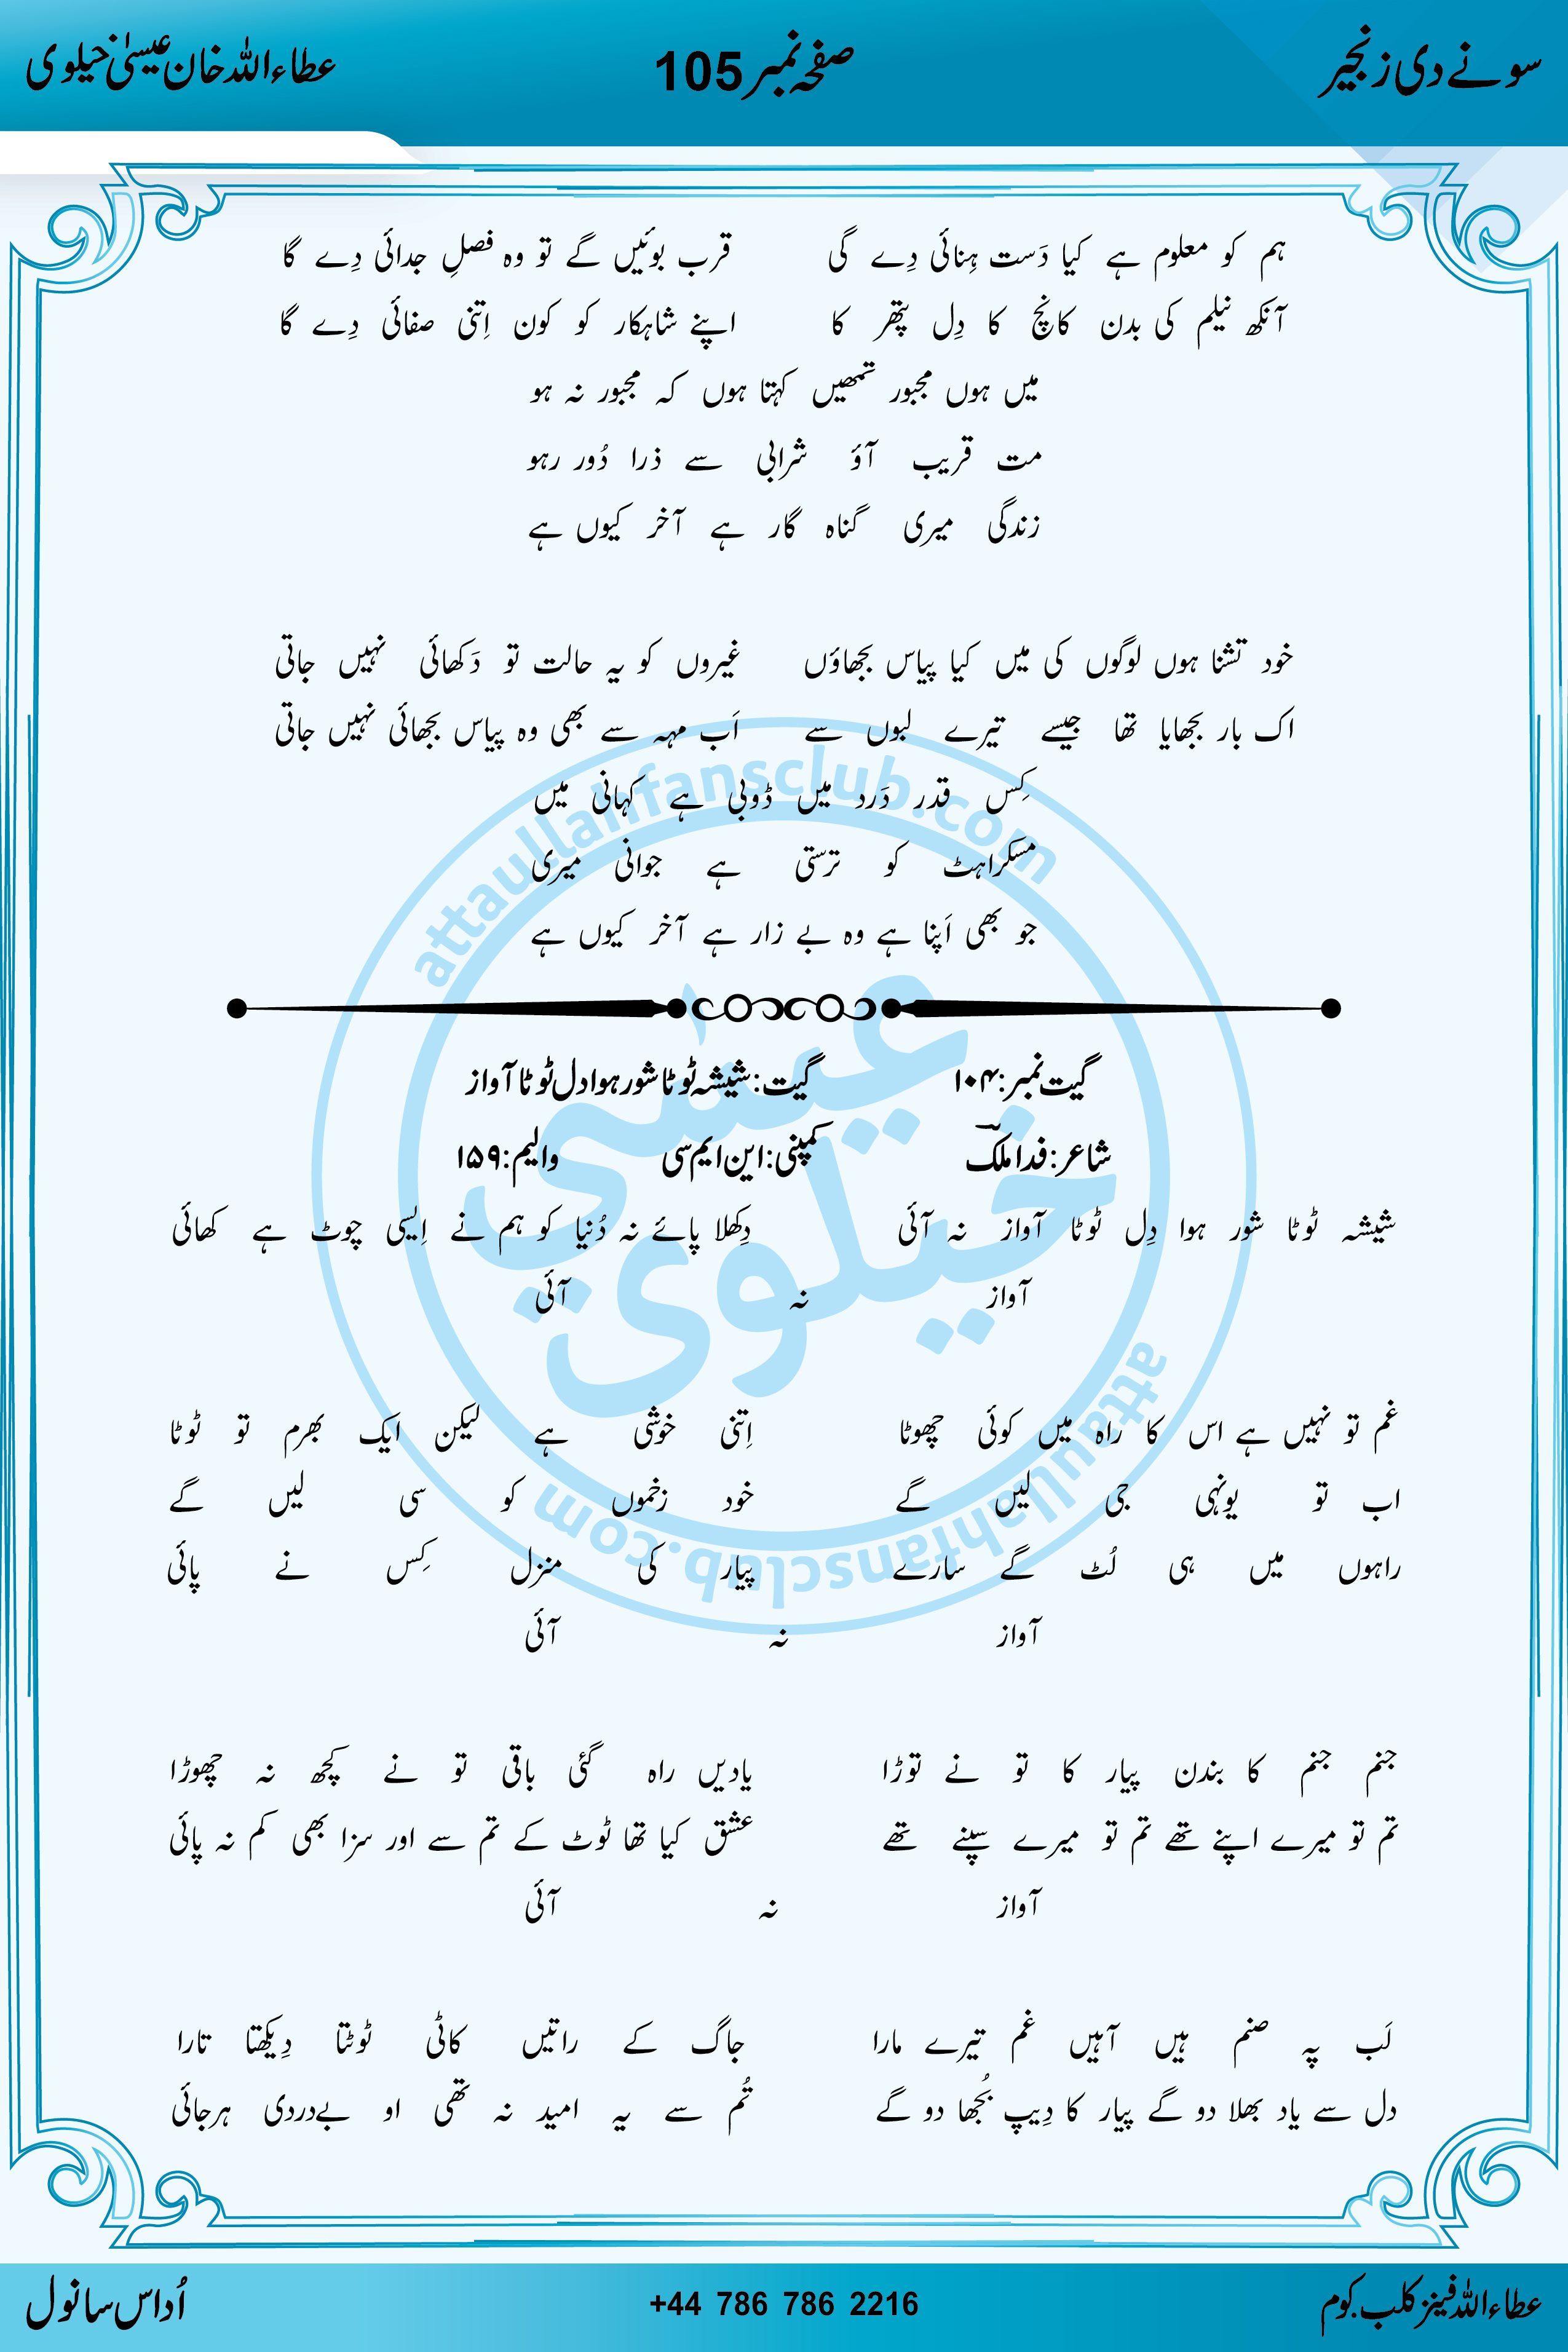 سونے دی زنجیر صفحہ نمبر 105 عطاءاللہ خان عیسیٰ خیلوی
ہم کو معلوم ہے کیا دَست ہِنائی دِے گی قرب بوئیں گے تو وہ فصلِ جدائی دِے گا
آنکھ نیلم کی بدن کانچ کا دِل پتھر کا اپنے شاہکار کو کون اِتنی صفائی دِے گا
میں ہوں مجبور تمھیں کہتا ہوں کہ مجبور نہ ہو
مت قریب آؤ شرابی سے ذرا دُور رہو
زندگی میری گناہ گار ہے آخر کیوں ہے
خود تشنا ہوں لوگوں کی میں کیا پیاس بجھاؤں غیروں کو یہ حالت تو دَکھائی نہیں جاتی
اک بار بجھایا تھا جیسے تیرے لبوں سے اَب مہہ سے بھی وہ پیاس بجھائی نہیں جاتی
کِس قدر دَرد میں ڈوبی ہے کہانی میں
مسکراہٹ کو ترستی ہے جوانی میری
جو بھی اَپنا ہے وہ بے زار ہے آخر کیوں ہے
گیت نمبر:۱۰۴ گیت: شیشہ ٹوٹا شور ہوا دل ٹوٹا آواز
شاعر: فدا ملک کمپنی: این ایم سی والیم:۱۵۹
شیشہ ٹوٹا شور ہوا دِل ٹوٹا آواز نہ آئی دِکھلا پائے نہ دُنیا کو ہم نے اِیسی چوٹ ہے کھائی
آواز نہ آئی
غم تو نہیں ہے اس کا راہ میں کوئی چھوٹا اِتنی خوشی ہے لیکن ایک بھرم تو ٹوٹا
اب تو یونہی جی لیں گے خود زخموں کو سی لیں گے
راہوں میں ہی لُٹ گے سارے پیار کی منزل کِس نے پائی
آواز نہ آئی
جنم جنم کا بندن پیار کا تو نے توڑا یادیں راہ گئی باقی تو نے کچھ نہ چھوڑا
تم تو میرے اپنے تھے تم تو میرے سپنے تھے عشق کیا تھا ٹوٹ کے تم سے اور سزا بھی کم نہ پائی
آواز نہ آئی
لَب پہ صنم ہیں آہیں غم تیرے مارا جاگ کے راتیں کاٹی ٹوٹتا دِیکھتا تارا
دل سے یاد بھلا دو گے پیار کا دِیپ بُجھا دو گے تُم سے یہ امید نہ تھی او بےدردی ہرجائی
attaullahfansclub.com
عیسیٰ
خیلوی
attaullahfansclub.com
عطاءاللہ فینز کلب.کوم +44 786 786 2216 اُداس سانول